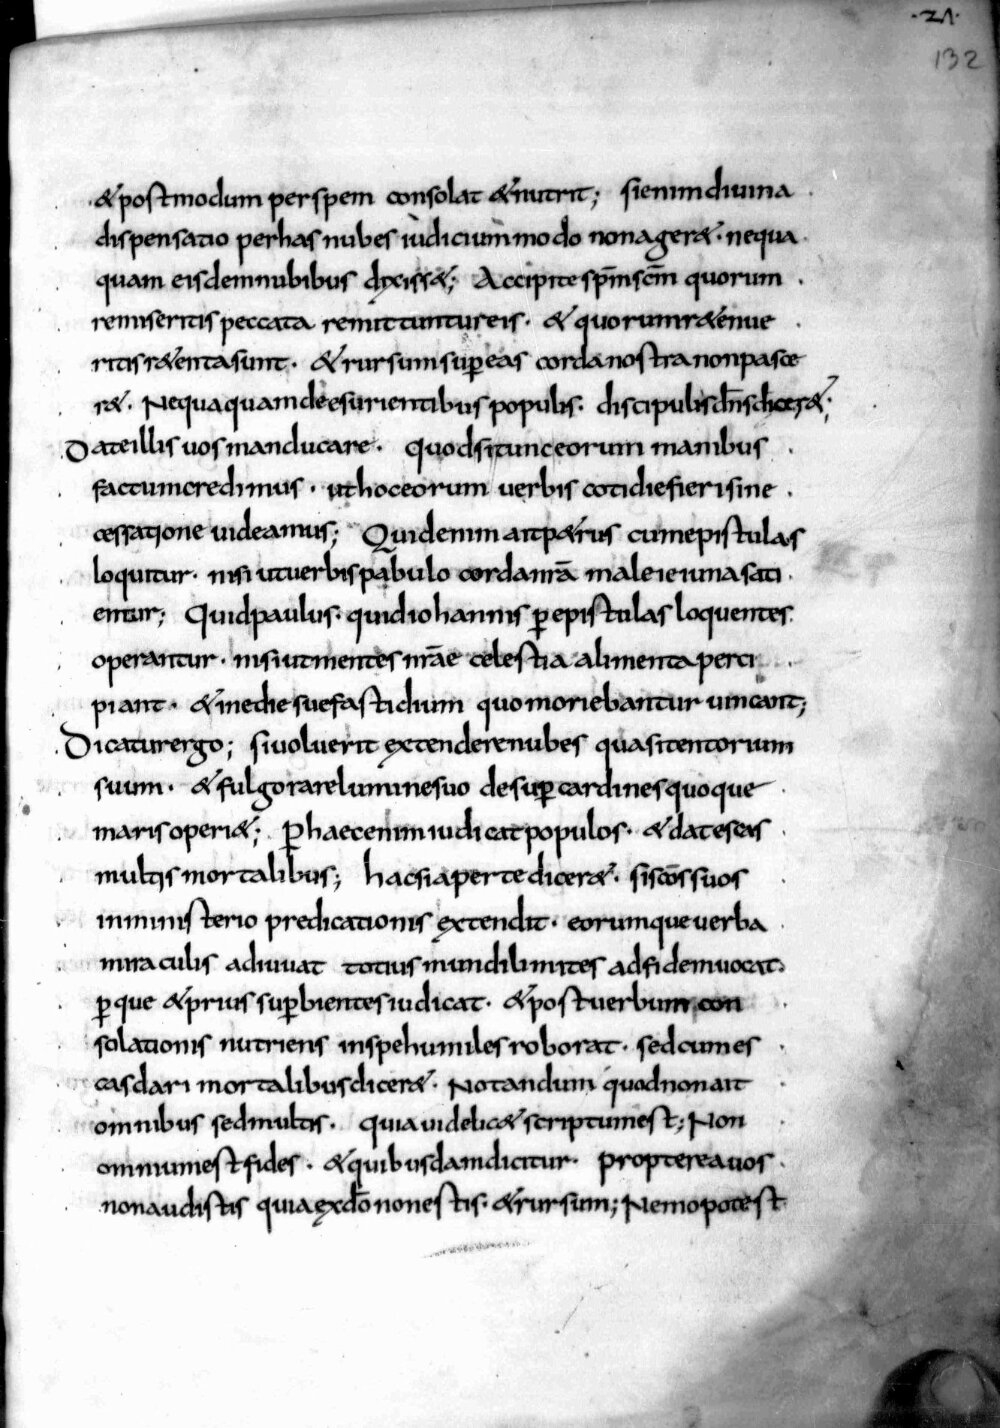 ·21·
132
&postmodum per spem consolat &nutrit; sienim diuina
dispensatio per has nubes iudicium modo non ager&· nequa
quam eisdem nubibus dixiss&; Accipite sp̄m sc̄m quorum
remiseritis peccata remittuntur eis· & quorum r&enue
ritis r&enta sunt· & rursum super eas corda nostra non pasce
r&· Nequaquam de esurientibus populis· discipulis dn̄s dicer&;
Date illis uos manducare· quod si tunc eorum manibus
factum credimus· ut hoc eorum uerbis cotidie fieri sine
cessatione uideamus; Quid enim ait p&rus cum epistulas
loquitur· nisi ut uerbis pabulo corda nr̄a male ieiuna sati
entur; Quid paulus· quid iohannis ꝑ epistulas loquentes
operantur· nisi ut mentes nr̄ae celestia alimenta perci
piant· & inedie sue fastidium quo moriebantur uincant;
Dicatur ergo; si uoluerit extendere nubes quasi tentorium
suum· & fulgorare lumine suo desuꝑ cardines quoque
maris operi&; Ꝑ haec enim iudicat populos· & dat escas
multis mortalibus; hac si aperte dicer&· si sc̄os suos
in ministerio predicationis extendit· eorumque uerba
miraculis adiuuat totius mundi limites ad fidem uocat·
ꝑ que & prius suꝑbientes iudicat· & post uerbum con
solationis nutriens in spe humiles roborat· sed cum es
cas dari mortalibus dicer&· Notandum quod non ait
omnibus sed multis· quia uidelic& scriptum est; Non
omnium est fides· & quibusdam dicitur· propterea uos
non audistis quia ex dō non estis· & rursum; Nemo potest